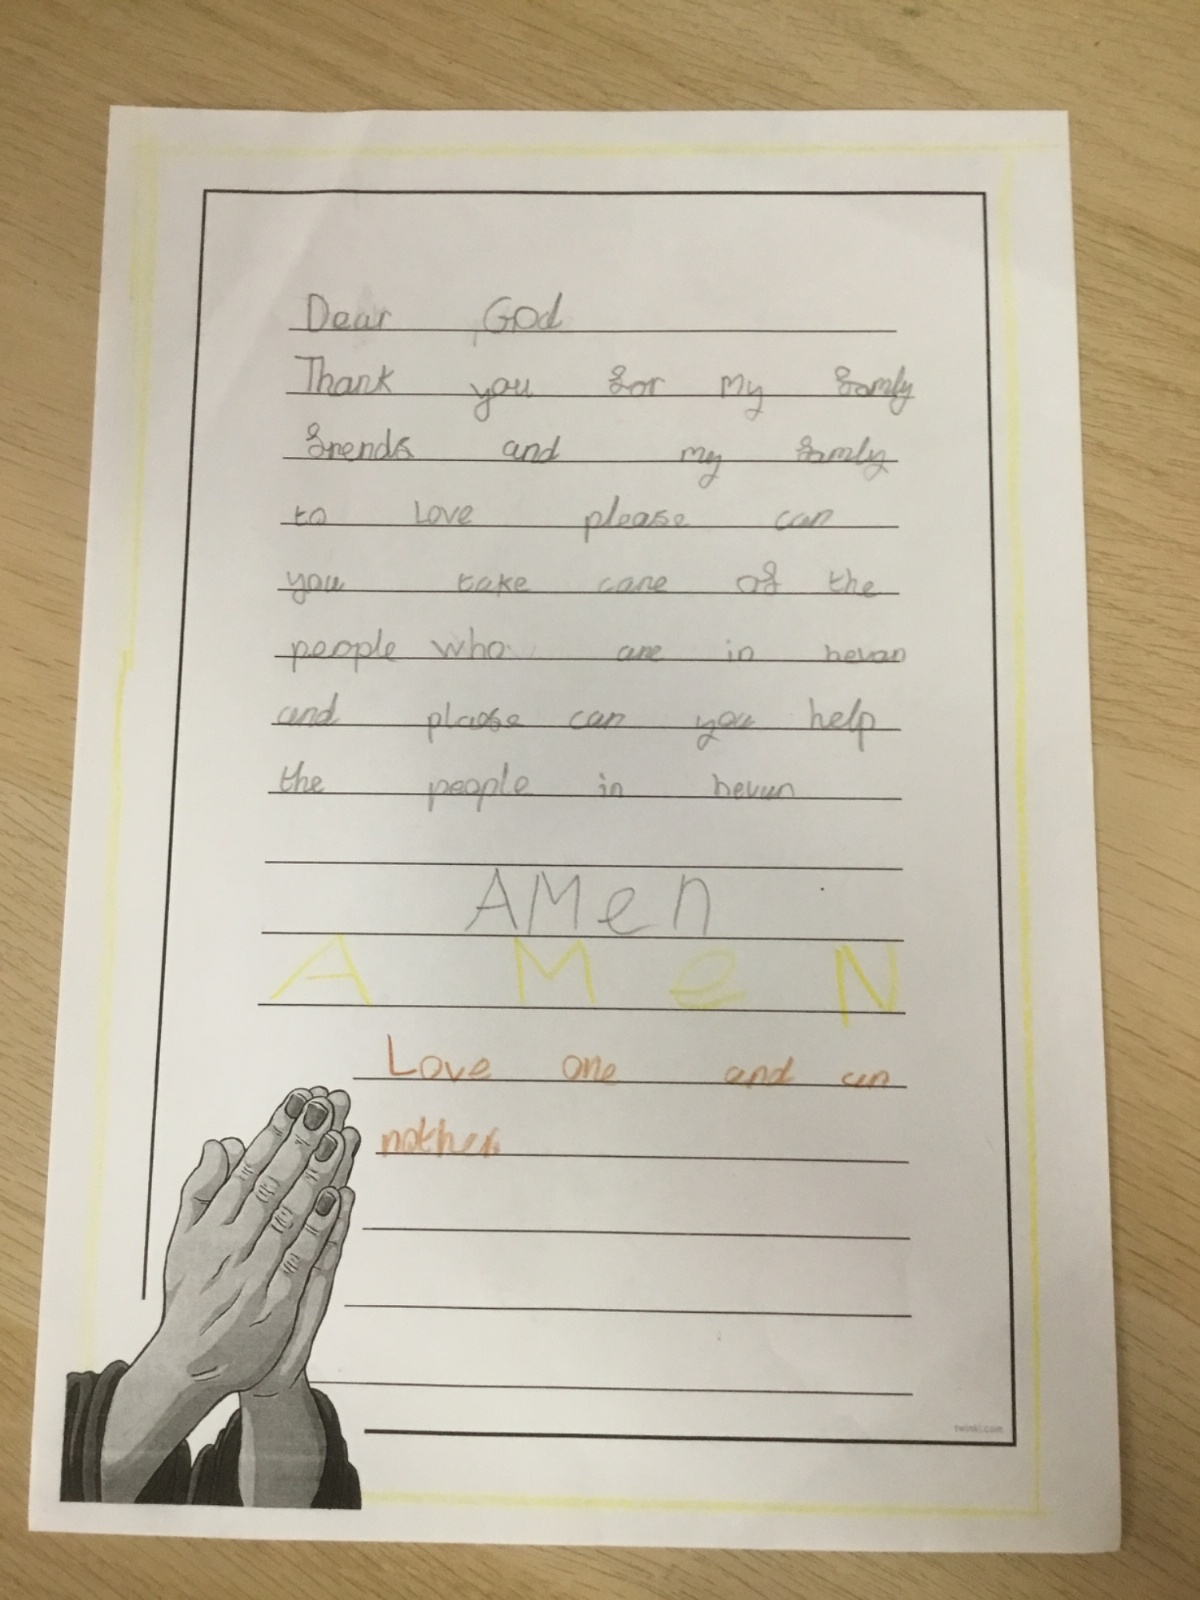 Dear God
Thank you for my famly
frends and my famly
to Love please can
you take care of the
people who are in hevan
and plaose can you help
the people in hevun
AMen
AMeN
Love one and an
nother
twinkl.com